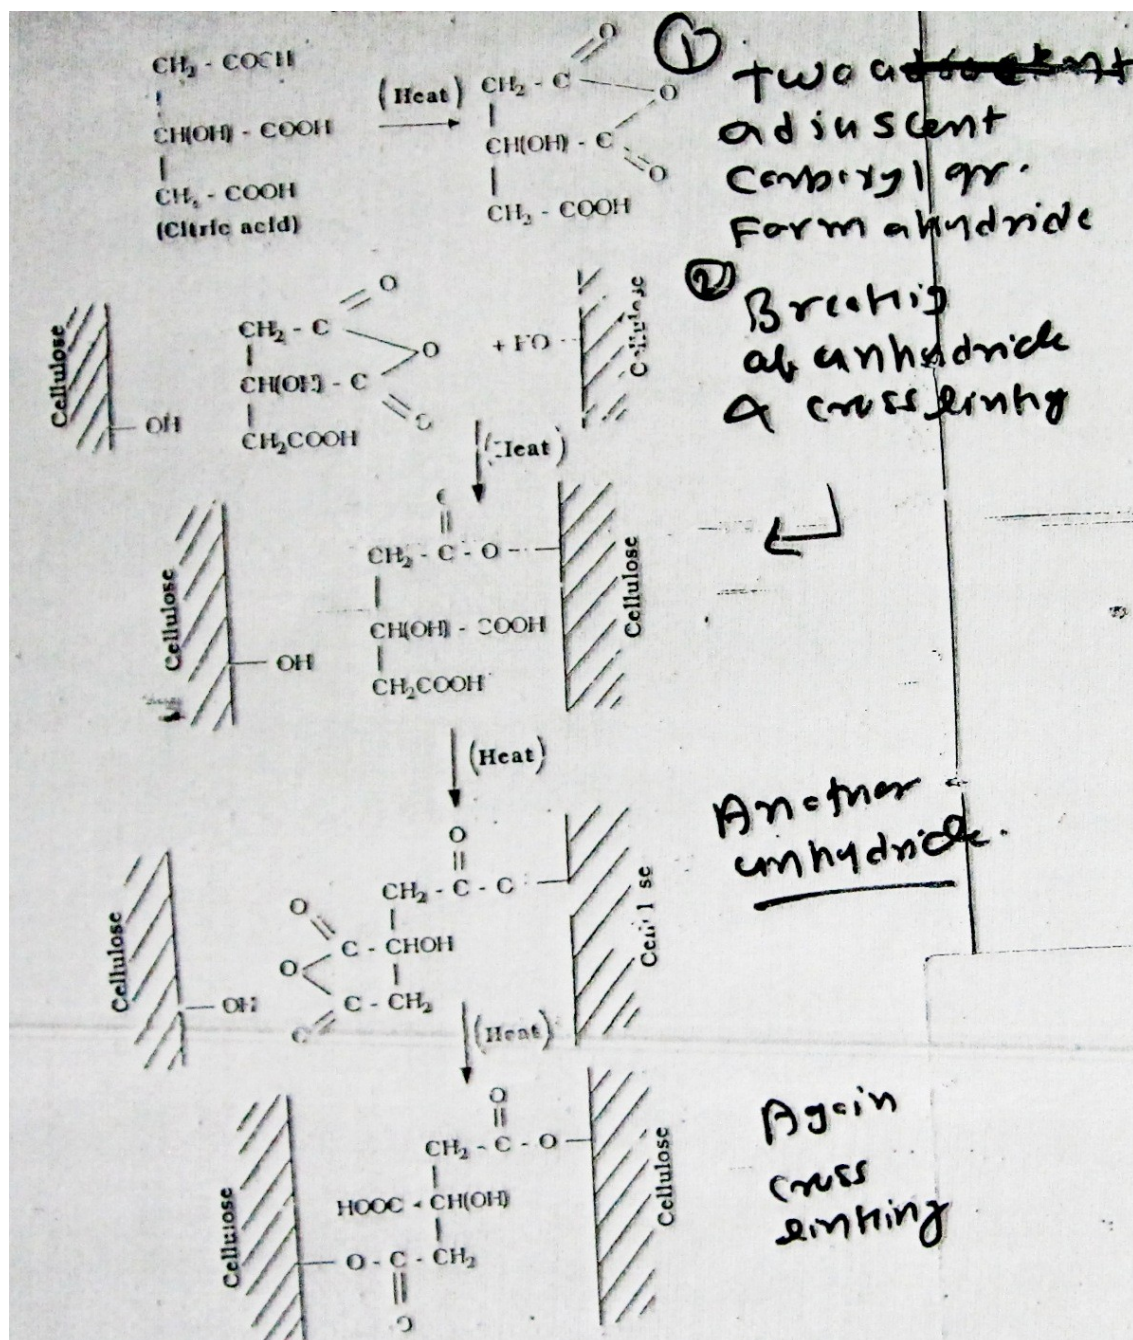 CH₂ - COOH
CH(OH) - COOH
CH₂ - COOH
(Citric acid)
(Heat)
O
CH₂ - C
O
CH(OH) - C
O
CH₂ - COOH
① two
adjuscent
Carboxyl gr.
Form ahydride
Cellulose
OH
O
CH₂ - C
O
CH(OH) - C
O
CH₂COOH
+ HO
Cellulose
② Breaking
of anhydride
& cross linking
(Heat)
Cellulose
OH
CH₂ - C - O
CH(OH) - COOH
CH₂COOH
Cellulose
(Heat)
Another
anhydride.
Cellulose
OH
O
CH₂ - C - C
O
C - CHOH
O
C - CH₂
Cellulose
(Heat)
Again
cross
linking
Cellulose
O
CH₂ - C - O
HOOC - CH(OH)
O - C - CH₂
O
Cellulose